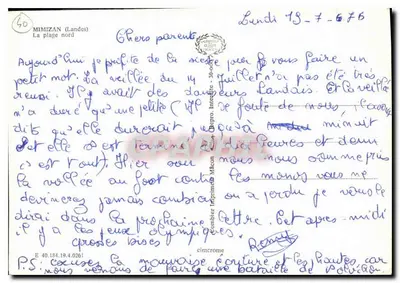 40
MIMIZAN (Landes)
La plage nord
Lundi 19-7-676
Chers parents
Aujourd'hui je profite de la sieste pour vous faire un
petit mot. La veillée du 14 juillet n'a pas été très
réussi. Il y avait des danseurs Landais. Et la veillée
n'a duré qu'une petite (Il se foute de nous l'avait
dit qu'elle durerait jusqu'à minuit
et elle s'est terminé à dix heures et demi
c'est tout). Hier soir nous nous sommes pris
la vallée au foot contre les monos vous ne
devinerez jamais combien on a perdu je vous le
dirai dans la prochaine lettre. Cet après-midi
il y a les jeux olympiques.
grosses bises
P.S. excusez la mauvaise écriture et les ratures car
nous venons de faire une bataille de polochon
E 40.184.19.4.0261
cimcrome